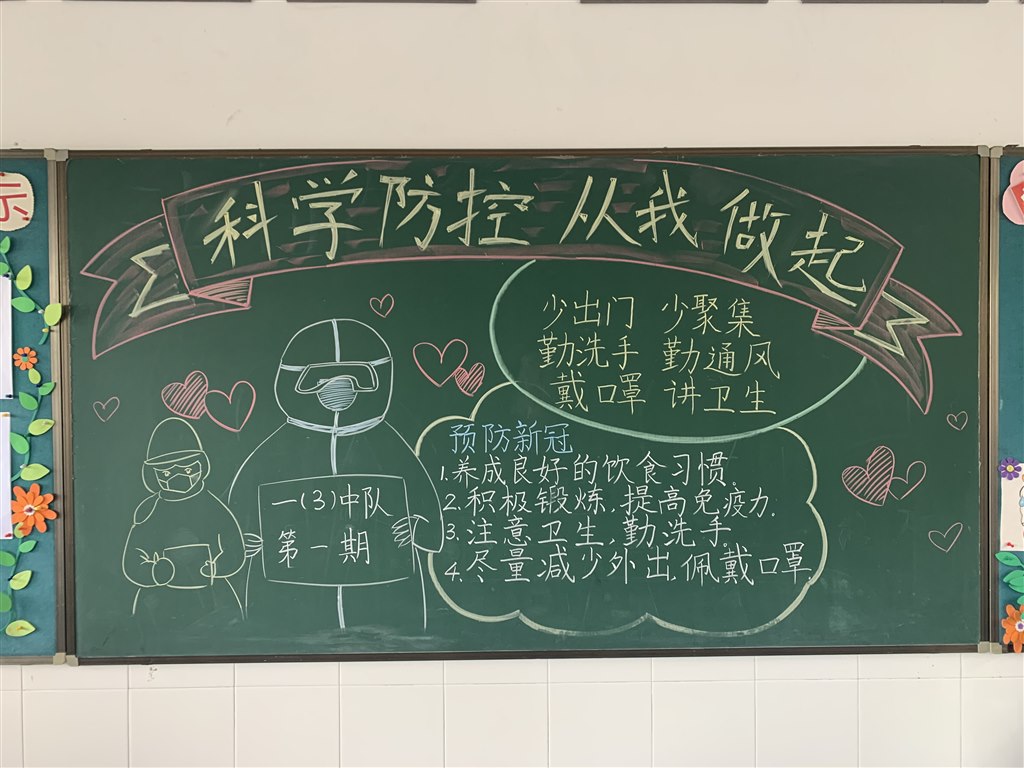 科学防控 从我做起
少出门 少聚集
勤洗手 勤通风
戴口罩 讲卫生
预防新冠
1.养成良好的饮食习惯。
2.积极锻炼,提高免疫力.
3.注意卫生,勤洗手。
4.尽量减少外出.佩戴口罩.
一(3)中队
第一期
示